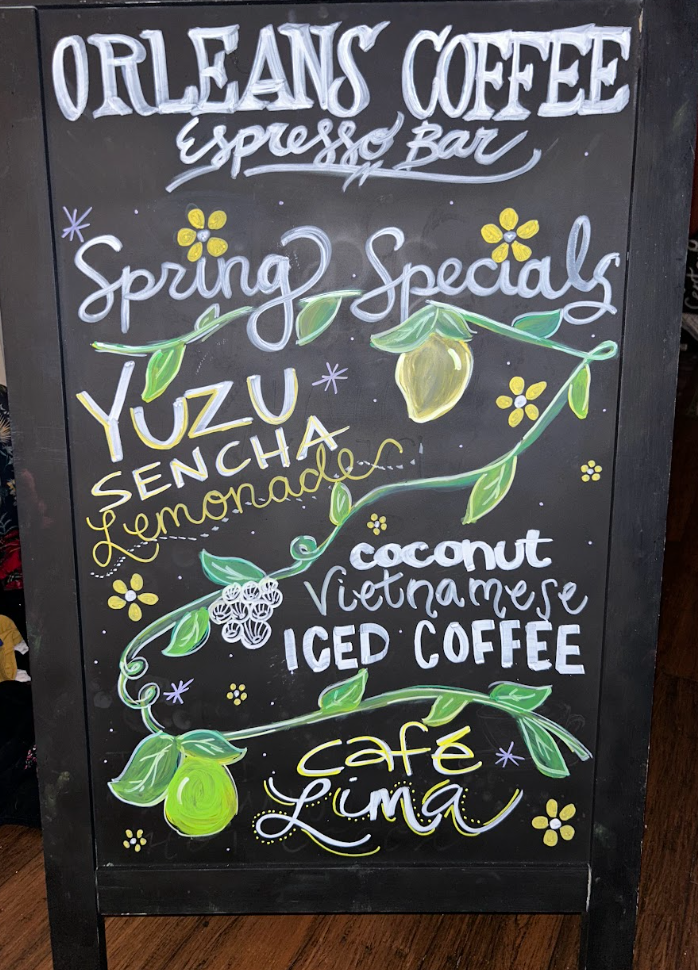 ORLEANS COFFEE
Espresso Bar
Spring Specials
YUZU
SENCHA
Lemonade
coconut
Vietnamese
ICED COFFEE
café
Lima